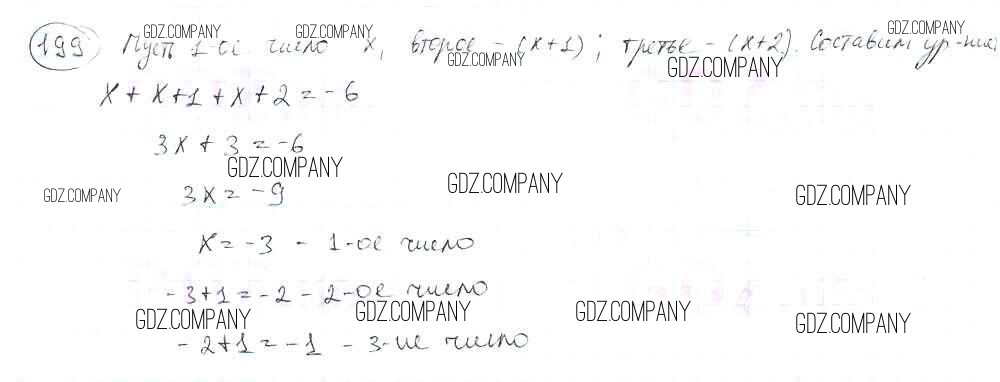 199 Пусть 1-ое число x, второе - (x+1); третье - (x+2). Составим ур-ние:
x + x+1 + x+2 = -6
3x + 3 = -6
3x = -9
x = -3 - 1-ое число
-3+1 = -2 - 2-ое число
-2+1 = -1 - 3-ие число
GDZ.COMPANY
GDZ.COMPANY
GDZ.COMPANY
GDZ.COMPANY
GDZ.COMPANY
GDZ.COMPANY
GDZ.COMPANY
GDZ.COMPANY
GDZ.COMPANY
GDZ.COMPANY
GDZ.COMPANY
GDZ.COMPANY
GDZ.COMPANY